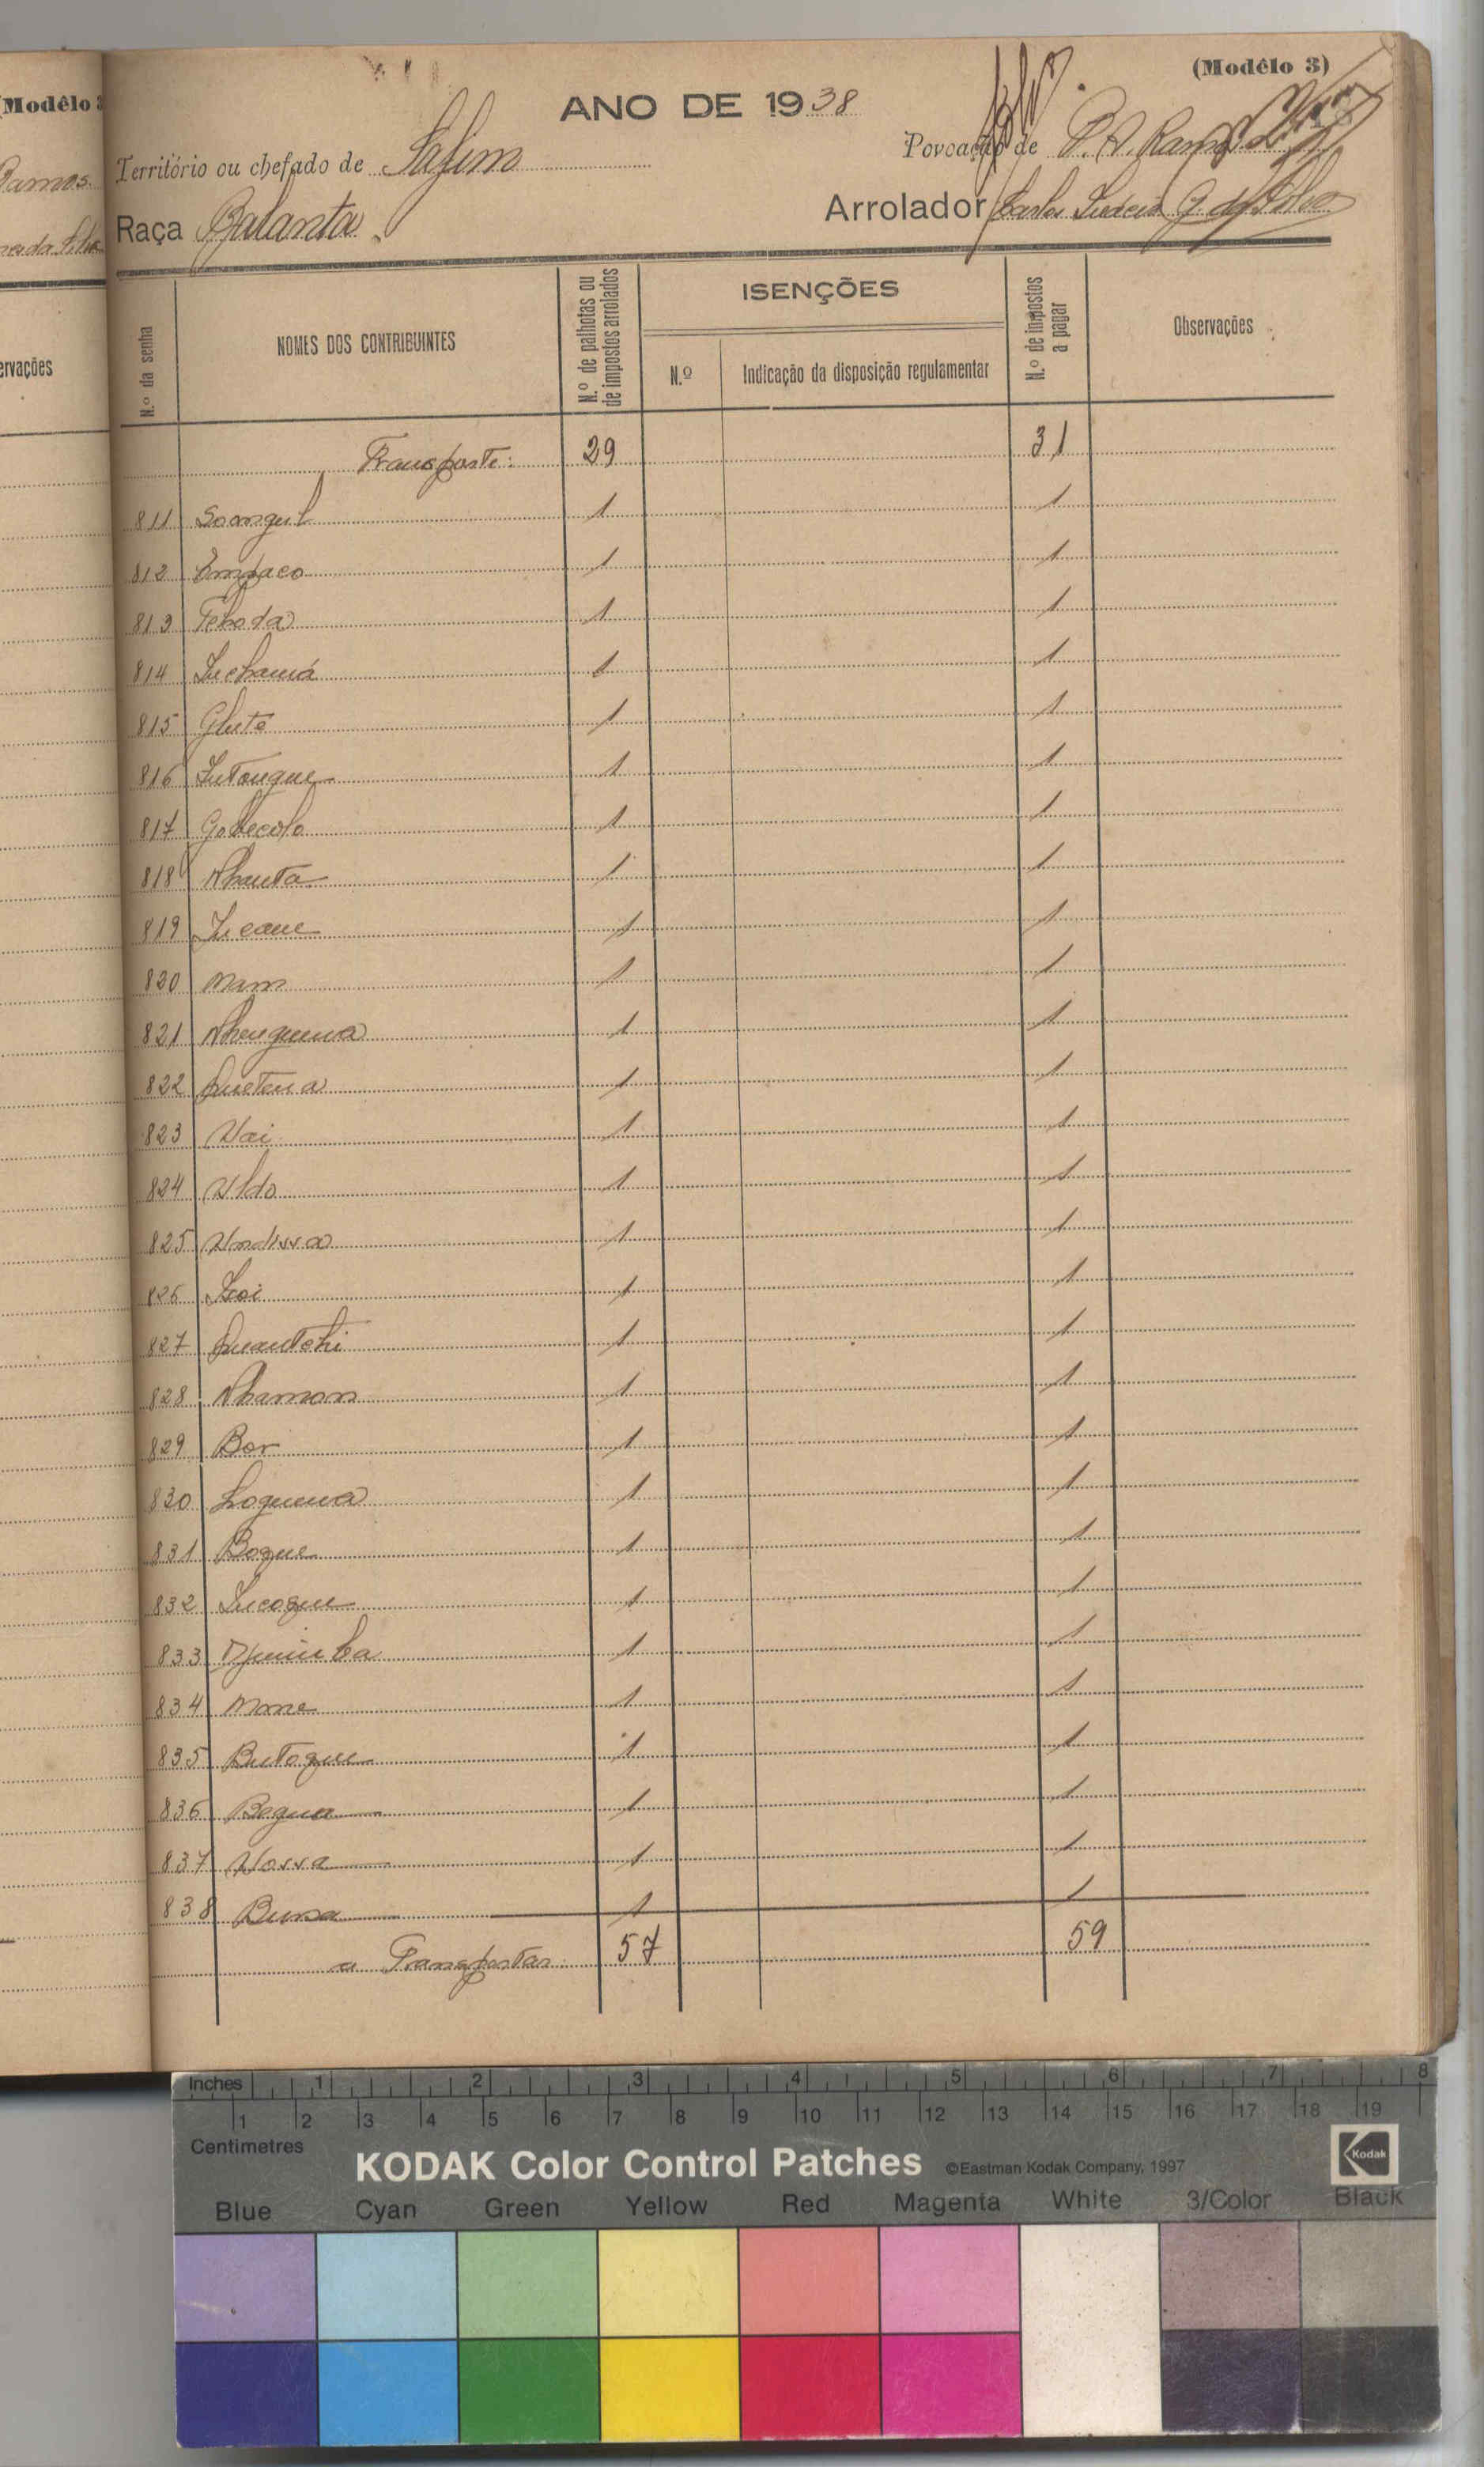 (Modêlo 3)
ANO DE 1938
Território ou chefado de Safim
Povoação de P. A. Ramos
Raça Balanta
Arrolador Carlos G. da Silva
N.º da senha
NOMES DOS CONTRIBUINTES
N.º de palhotas ou de impostos arrolados
ISENÇÕES
N.º
Indicação da disposição regulamentar
N.º de impostos a pagar
Observações
Transporte: 29 31
811 1 1
812 Empaco 1 1
813 1 1
814 1 1
815 Glute 1 1
816 1 1
817 1 1
818 Nhanta 1 1
819 1 1
820 Nam 1 1
821 Nhenguena 1 1
822 Quetena 1 1
823 Uai 1 1
824 Uldo 1 1
825 Undissa 1 1
826 1 1
827 Quantchi 1 1
828 Nhamon 1 1
829 Bor 1 1
830 Loquena 1 1
831 Boque 1 1
832 1 1
833 1 1
834 1 1
835 Butoque 1 1
836 Bogua 1 1
837 Uossa 1 1
838 1 1
a Transportar 57 59
Modêlo
Ramos
ervações
Inches 1 2 3 4 5 6 7 8
1 2 3 4 5 6 7 8 9 10 11 12 13 14 15 16 17 18 19
Centimetres
KODAK Color Control Patches ©Eastman Kodak Company, 1997 Kodak
Blue Cyan Green Yellow Red Magenta White 3/Color Black